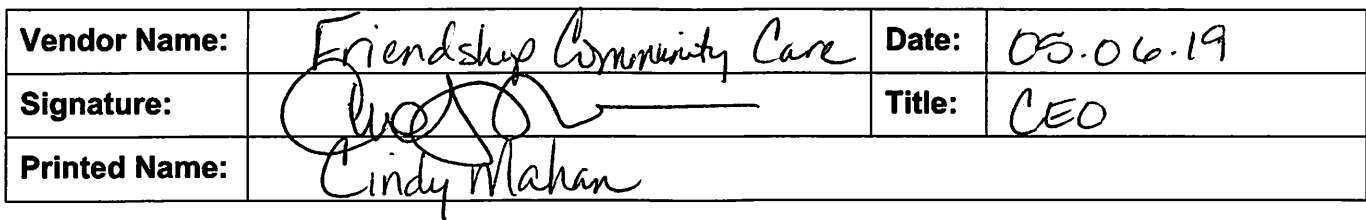 Vendor Name: Friendship Community Care Date: 05.06.19
Signature: Title: CEO
Printed Name: Cindy Mahan